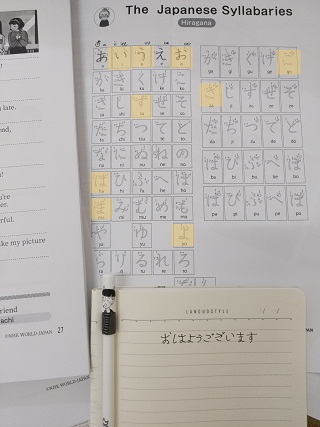 The Japanese Syllabaries
Hiragana
あ い う え お
a i u e o
か き く け こ
ka ki ku ke ko
さ し す せ そ
sa shi su se so
た ち つ て と
ta chi tsu te to
な に ぬ ね の
na ni nu ne no
は ひ ふ へ ほ
ha hi fu he ho
ま み む め も
ma mi mu me mo
や ゆ よ
ya yu yo
ら り る れ ろ
が ぎ ぐ げ ご
ga gi gu ge go
ざ じ ず ぜ ぞ
za ji zu ze zo
だ ぢ づ で ど
da ji zu de do
ば び ぶ べ ぼ
ba bi bu be bo
ぱ ぴ ぷ ぺ ぽ
pa pi pu pe po
late.
end,
!
u're
er.
erful.
ke my picture
riend
achi
©NHK WORLD-JAPAN 27
©NHK WORLD-JAPAN
LANGUOSTYLE / /
おはようございます